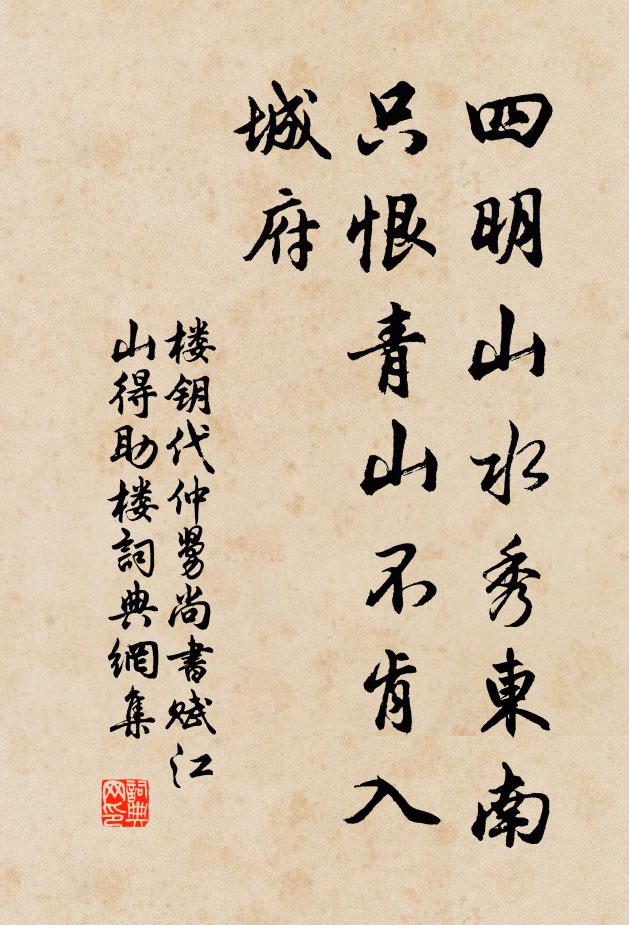 四明山水秀東南
只恨青山不肯入
城府
楼钥代仲舅尚書赋江
山得助楼詞典網集
詞典
网印